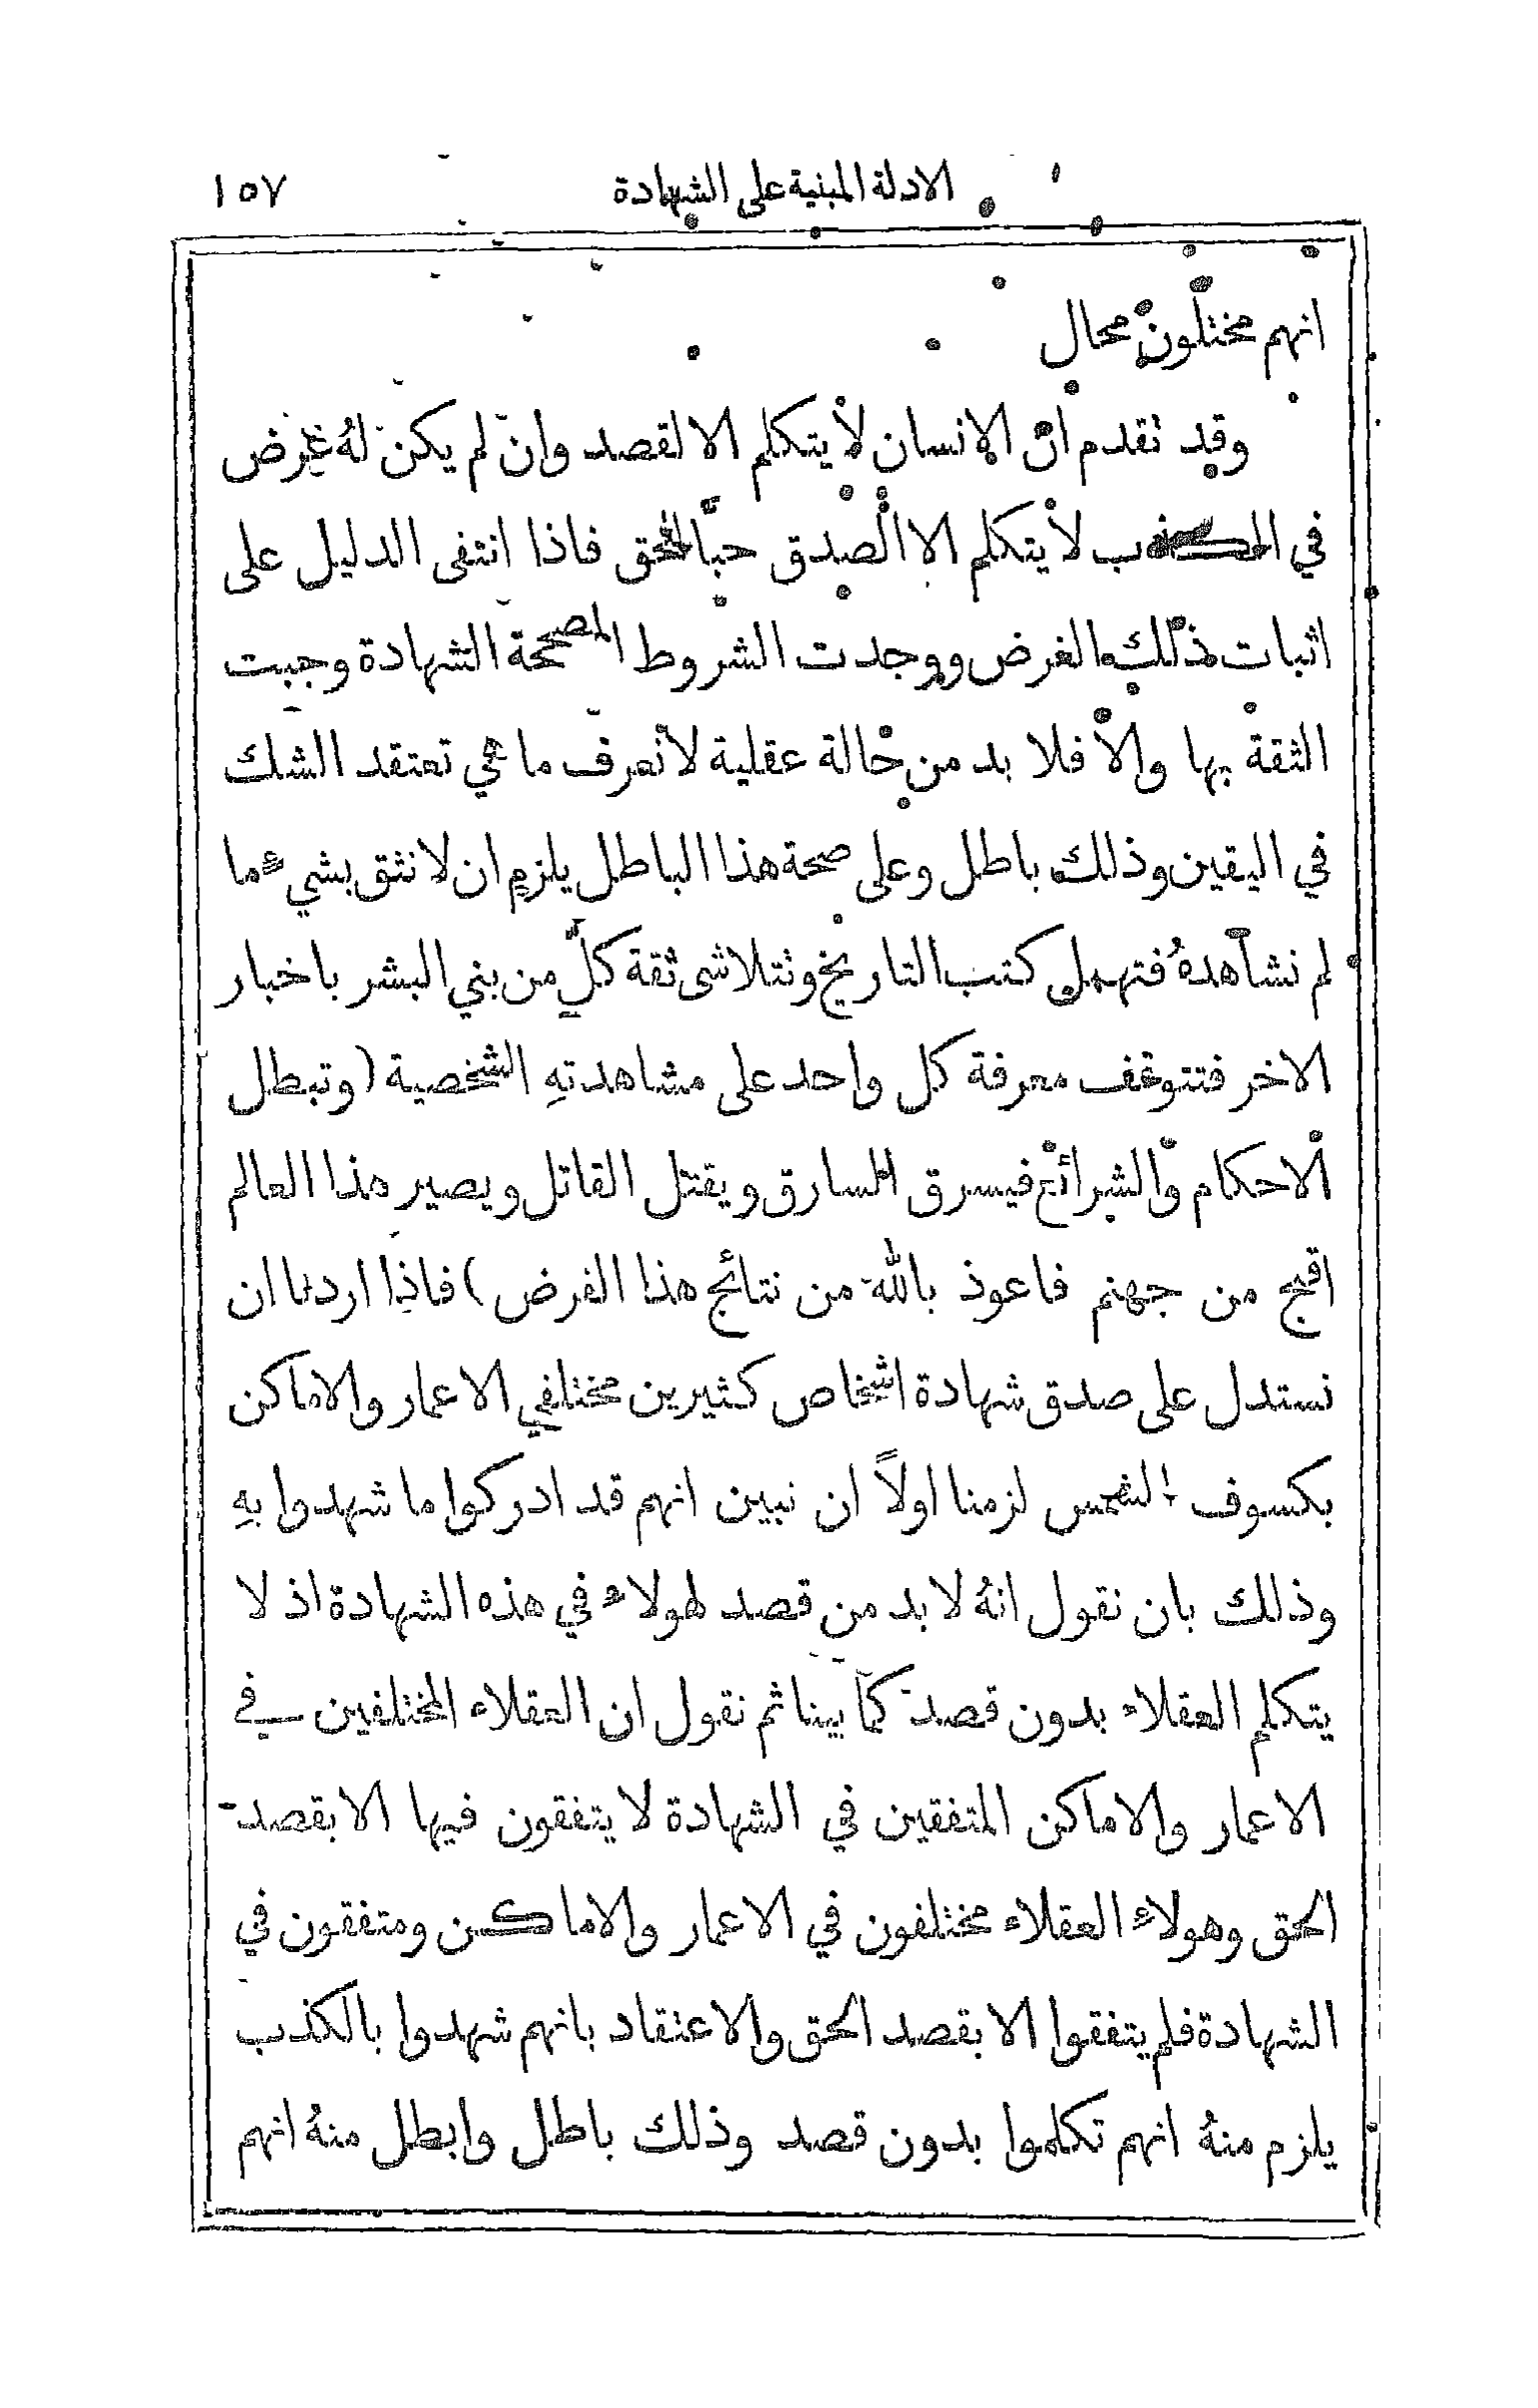 الادلة المبنية على الشهادة ١٥٧
انهم مختلون محال
وقد نقدم ان الانسان لا يتكلم الا لقصد وان لم يكن لهُ غرض
في الكذب لا يتكلم الا الصدق حبًّا للحق فاذا انتفى الدليل على
اثبات ذلك الغرض ووجدت الشروط المصححة الشهادة وجبت
الثقة بها والا فلا بد من حالة عقلية لا نعرف ما هي تعتقد الشك
في اليقين وذلك باطل وعلى صحة هذا الباطل يلزم ان لا نثق بشيءٍ ما
لم نشاهدهُ فتهمل كتب التاريخ ونتلاشى ثقة كلٍّ من بني البشر باخبار
الاخر فتتوقف معرفة كل واحد على مشاهدتهِ الشخصية (وتبطل
الاحكام والشرائع فيسرق السارق ويقتل القاتل ويصير هذا العالم
اقبح من جهنم فاعوذ بالله من نتائج هذا الفرض) فاذا اردنا ان
نستدل على صدق شهادة اشخاص كثيرين مختلفي الاعمار والاماكن
بكسوف الشمس لزمنا اولاً ان نبين انهم قد ادركوا ما شهدوا بهِ
وذلك بان نقول انهُ لا بد من قصد لهولاءِ في هذه الشهادة اذ لا
يتكلم العقلاء بدون قصد كما بينا ثم نقول ان العقلاء المختلفين في
الاعمار والاماكن المتفقين في الشهادة لا يتفقون فيها الا بقصد
الحق وهولاءِ العقلاء مختلفون في الاعمار والاماكن ومتفقون في
الشهادة فلم يتفقوا الا بقصد الحق والاعتقاد بانهم شهدوا بالكذب
يلزم منهُ انهم تكلموا بدون قصد وذلك باطل وابطل منهُ انهم